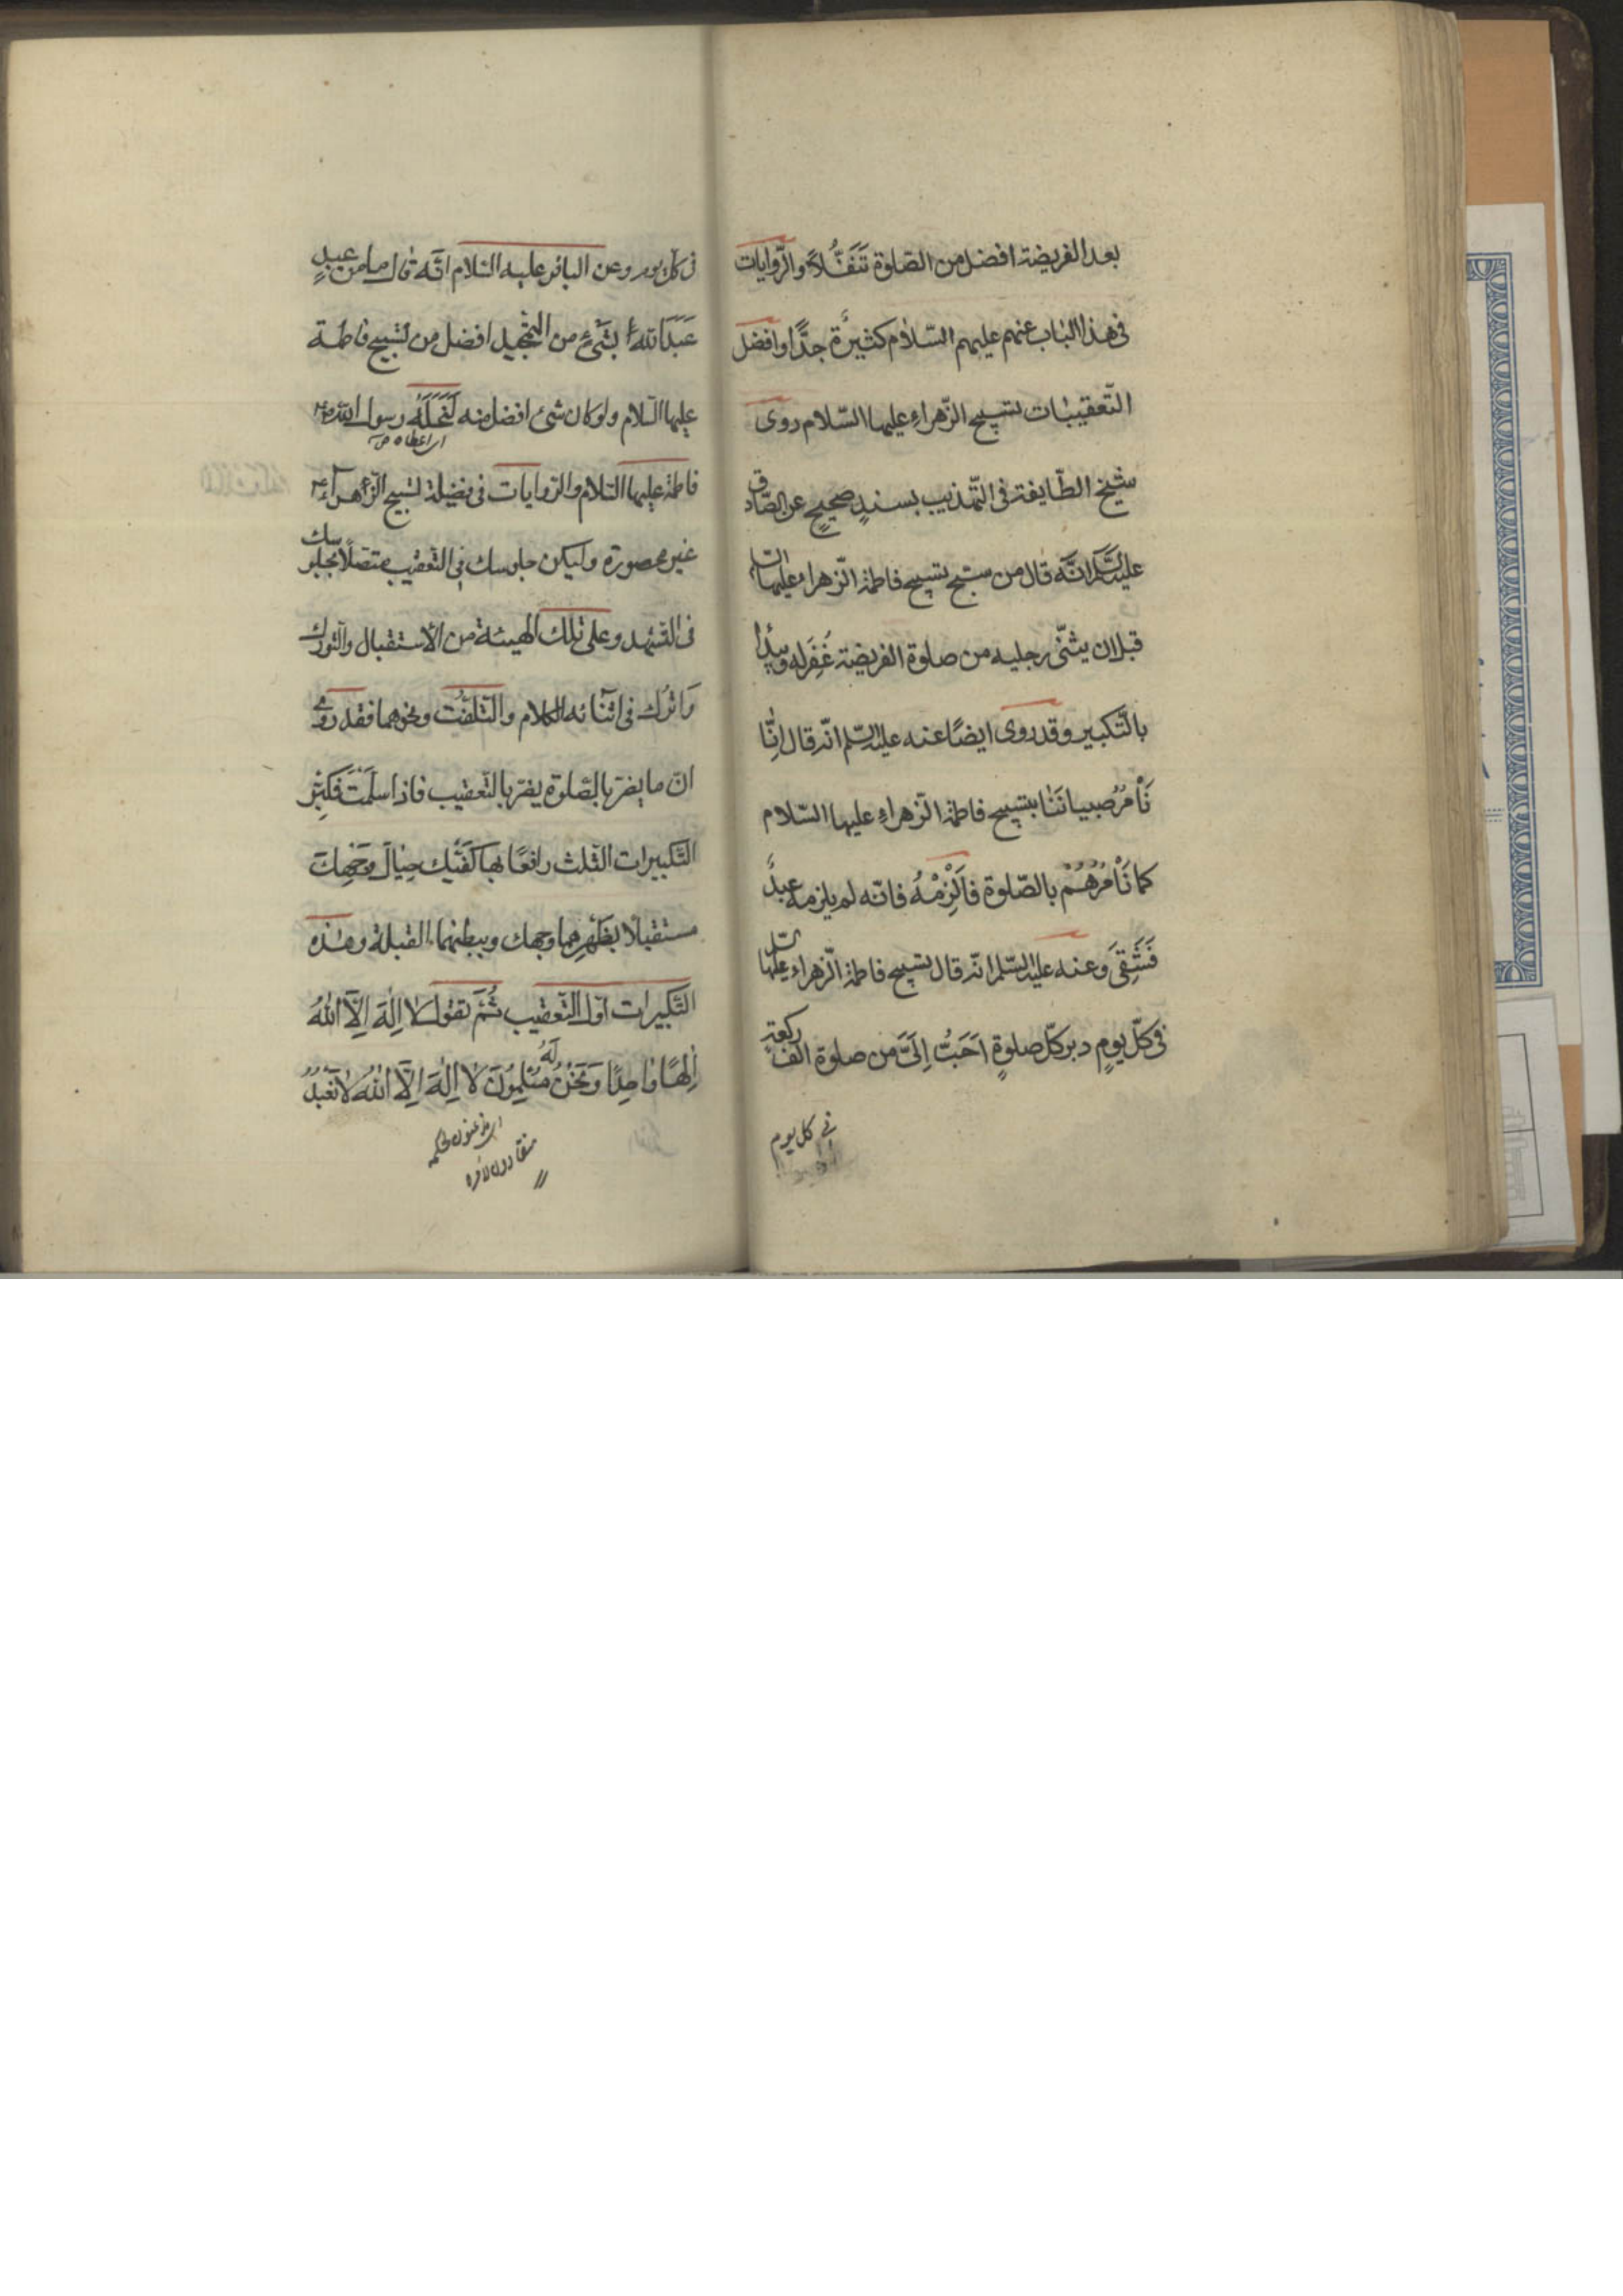 بعد الفريضة افضل من الصّلوة تَنَفُّلاً والرّوايات
فى هذا الباب عنهم عليهم السّلام كثيرة جدًّا وافضل
التّعقيبات تسبيح الزّهراءِ عليها السّلام روى
شيخ الطّايفة فى التّهذيب بسندٍ صحيحٍ عن الصّادق
عليه السّلم انّه قال من سبّح تسبيح فاطمة الزّهراء عليها السّلم
قبل ان يثنّى رجليه من صلوة الفريضة غُفِرَ له ويبدأ
بالتّكبير وقد روى ايضًا عنه عليه السّلم انّه قال انّا
نَأْمُرُ صبياننا بتسبيح فاطمة الزّهراءِ عليها السّلام
كما نَأْمُرُهُمْ بالصّلوة فاَلْزِمْهُ فانّه لم يلزمه عبدٌ
فَشَقِىَ وعنه عليه السّلم انّه قال تسبيح فاطمة الزّهراء عليها السّلم
فى كلّ يومٍ دبر كلّ صلوةٍ اَحَبُّ اِلَىَّ من صلوة الف ركعةٍ
فى كل يوم
فى كل يوم وعن الباقر عليه السّلام انّه قال ما من عبدٍ
عَبَدَ اللهَ بشَىْءٍ من التّحميد افضل من تسبيح فاطمة
عليها السّلام ولو كان شئ افضل منه لَنَحَلَهُ رسول الله ص
اى اعطاه
فاطمة عليها السّلام والرّوايات فى فضيلة تسبيح الزّهراء ع
غير محصورة وليكن جلوسك فى التّعقيب متصلاً بجلوسك
فى التّشهد وعلى تلك الهيئة من الاستقبال والتّورك
وَاترُك فى اثنائه الكلام والتّلفّت ونحوهما فقد روى
انّ ما يضرّ بالصّلوة يضرّ بالتّعقيب فاذا سلّمتَ فكبِّر
التّكبيرات الثّلث رافعًا بها كَفَّيْك حِيَالَ وَجْهِكَ
مستقبلا بظَهْرِهما وجهك وببطنهما القبلة وهذه
التّكبيرات اوّل التّعقيب ثُمَّ تقول لا اِلٰهَ اِلَّا اللهُ
اِلٰهًا وٰاحِدًا وَنَحْنُ لَهُ مُسْلِمُونَ لا اِلٰهَ اِلَّا اللهُ لا نَعْبُدُ